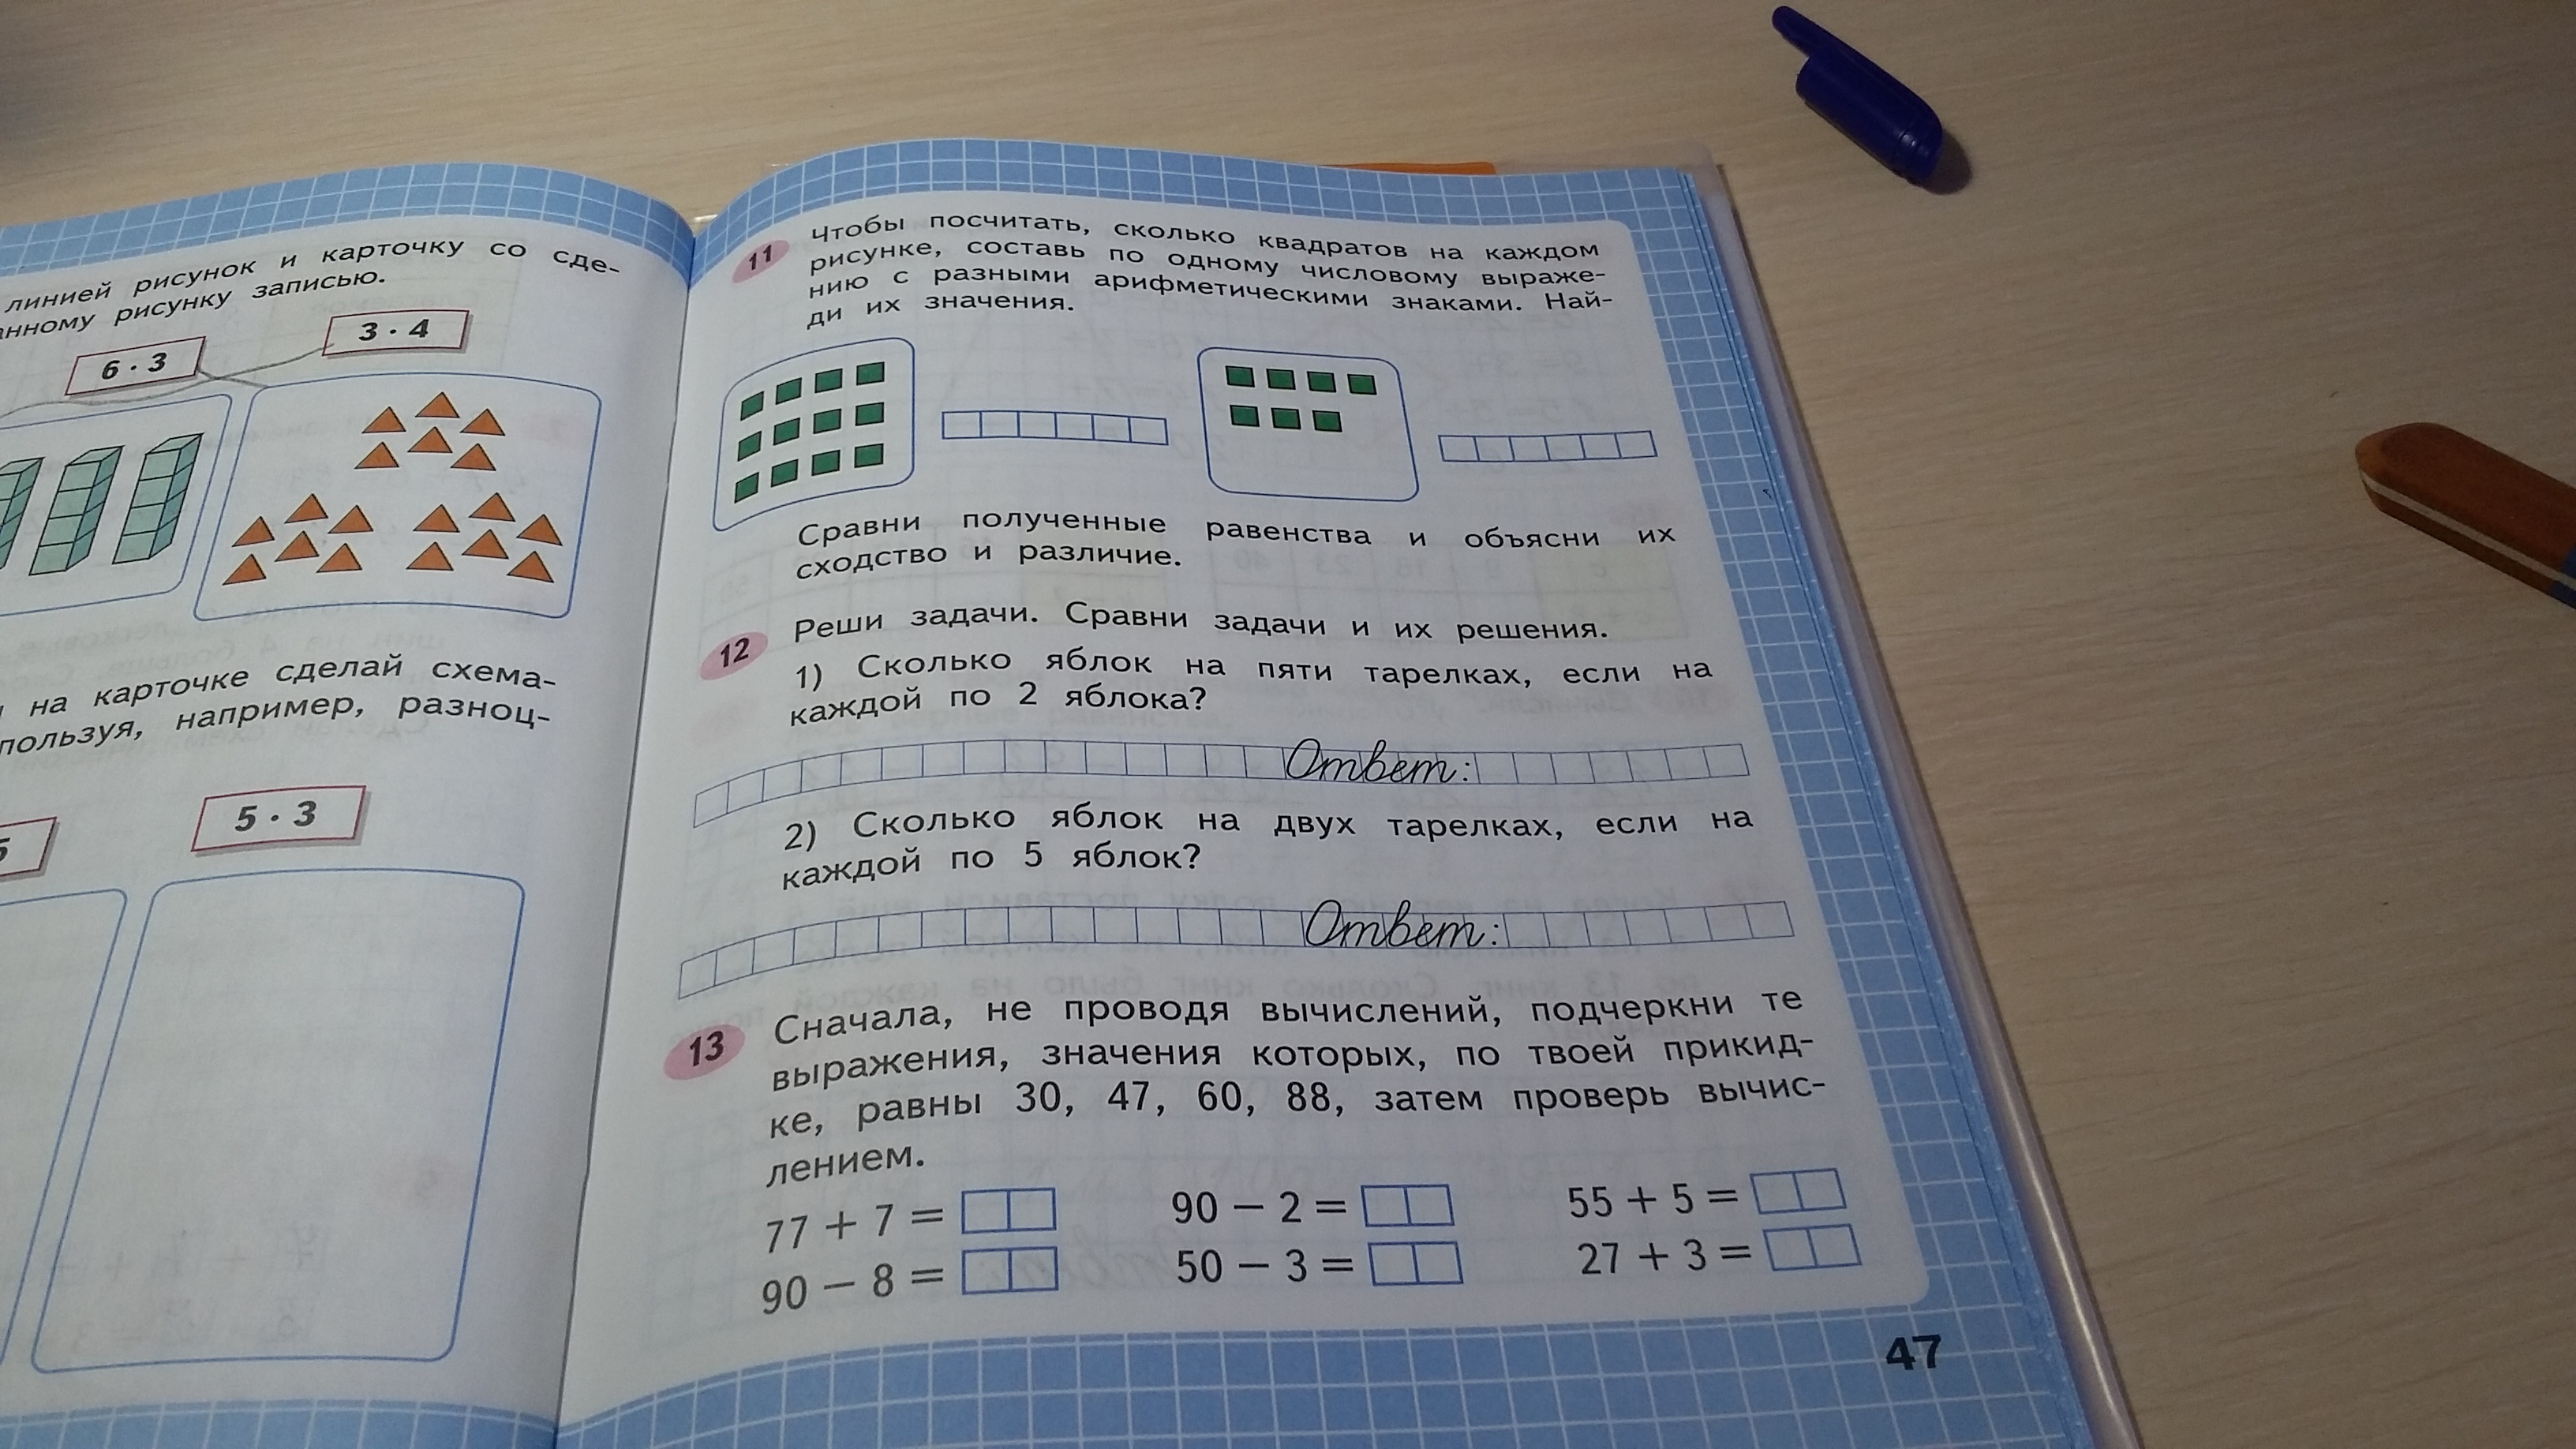 линией рисунок и карточку со сде-
рисунку записью.
6 · 3
3 · 4
на карточке сделай схема-
например, разноц-
5 · 3
11 Чтобы посчитать, сколько квадратов на каждом
рисунке, составь по одному числовому выраже-
нию с разными арифметическими знаками. Най-
ди их значения.
Сравни полученные равенства и объясни их
сходство и различие.
12 Реши задачи. Сравни задачи и их решения.
1) Сколько яблок на пяти тарелках, если на
каждой по 2 яблока?
Ответ:
2) Сколько яблок на двух тарелках, если на
каждой по 5 яблок?
Ответ:
13 Сначала, не проводя вычислений, подчеркни те
выражения, значения которых, по твоей прикид-
ке, равны 30, 47, 60, 88, затем проверь вычис-
лением.
77 + 7 =
90 − 2 =
55 + 5 =
90 − 8 =
50 − 3 =
27 + 3 =
47